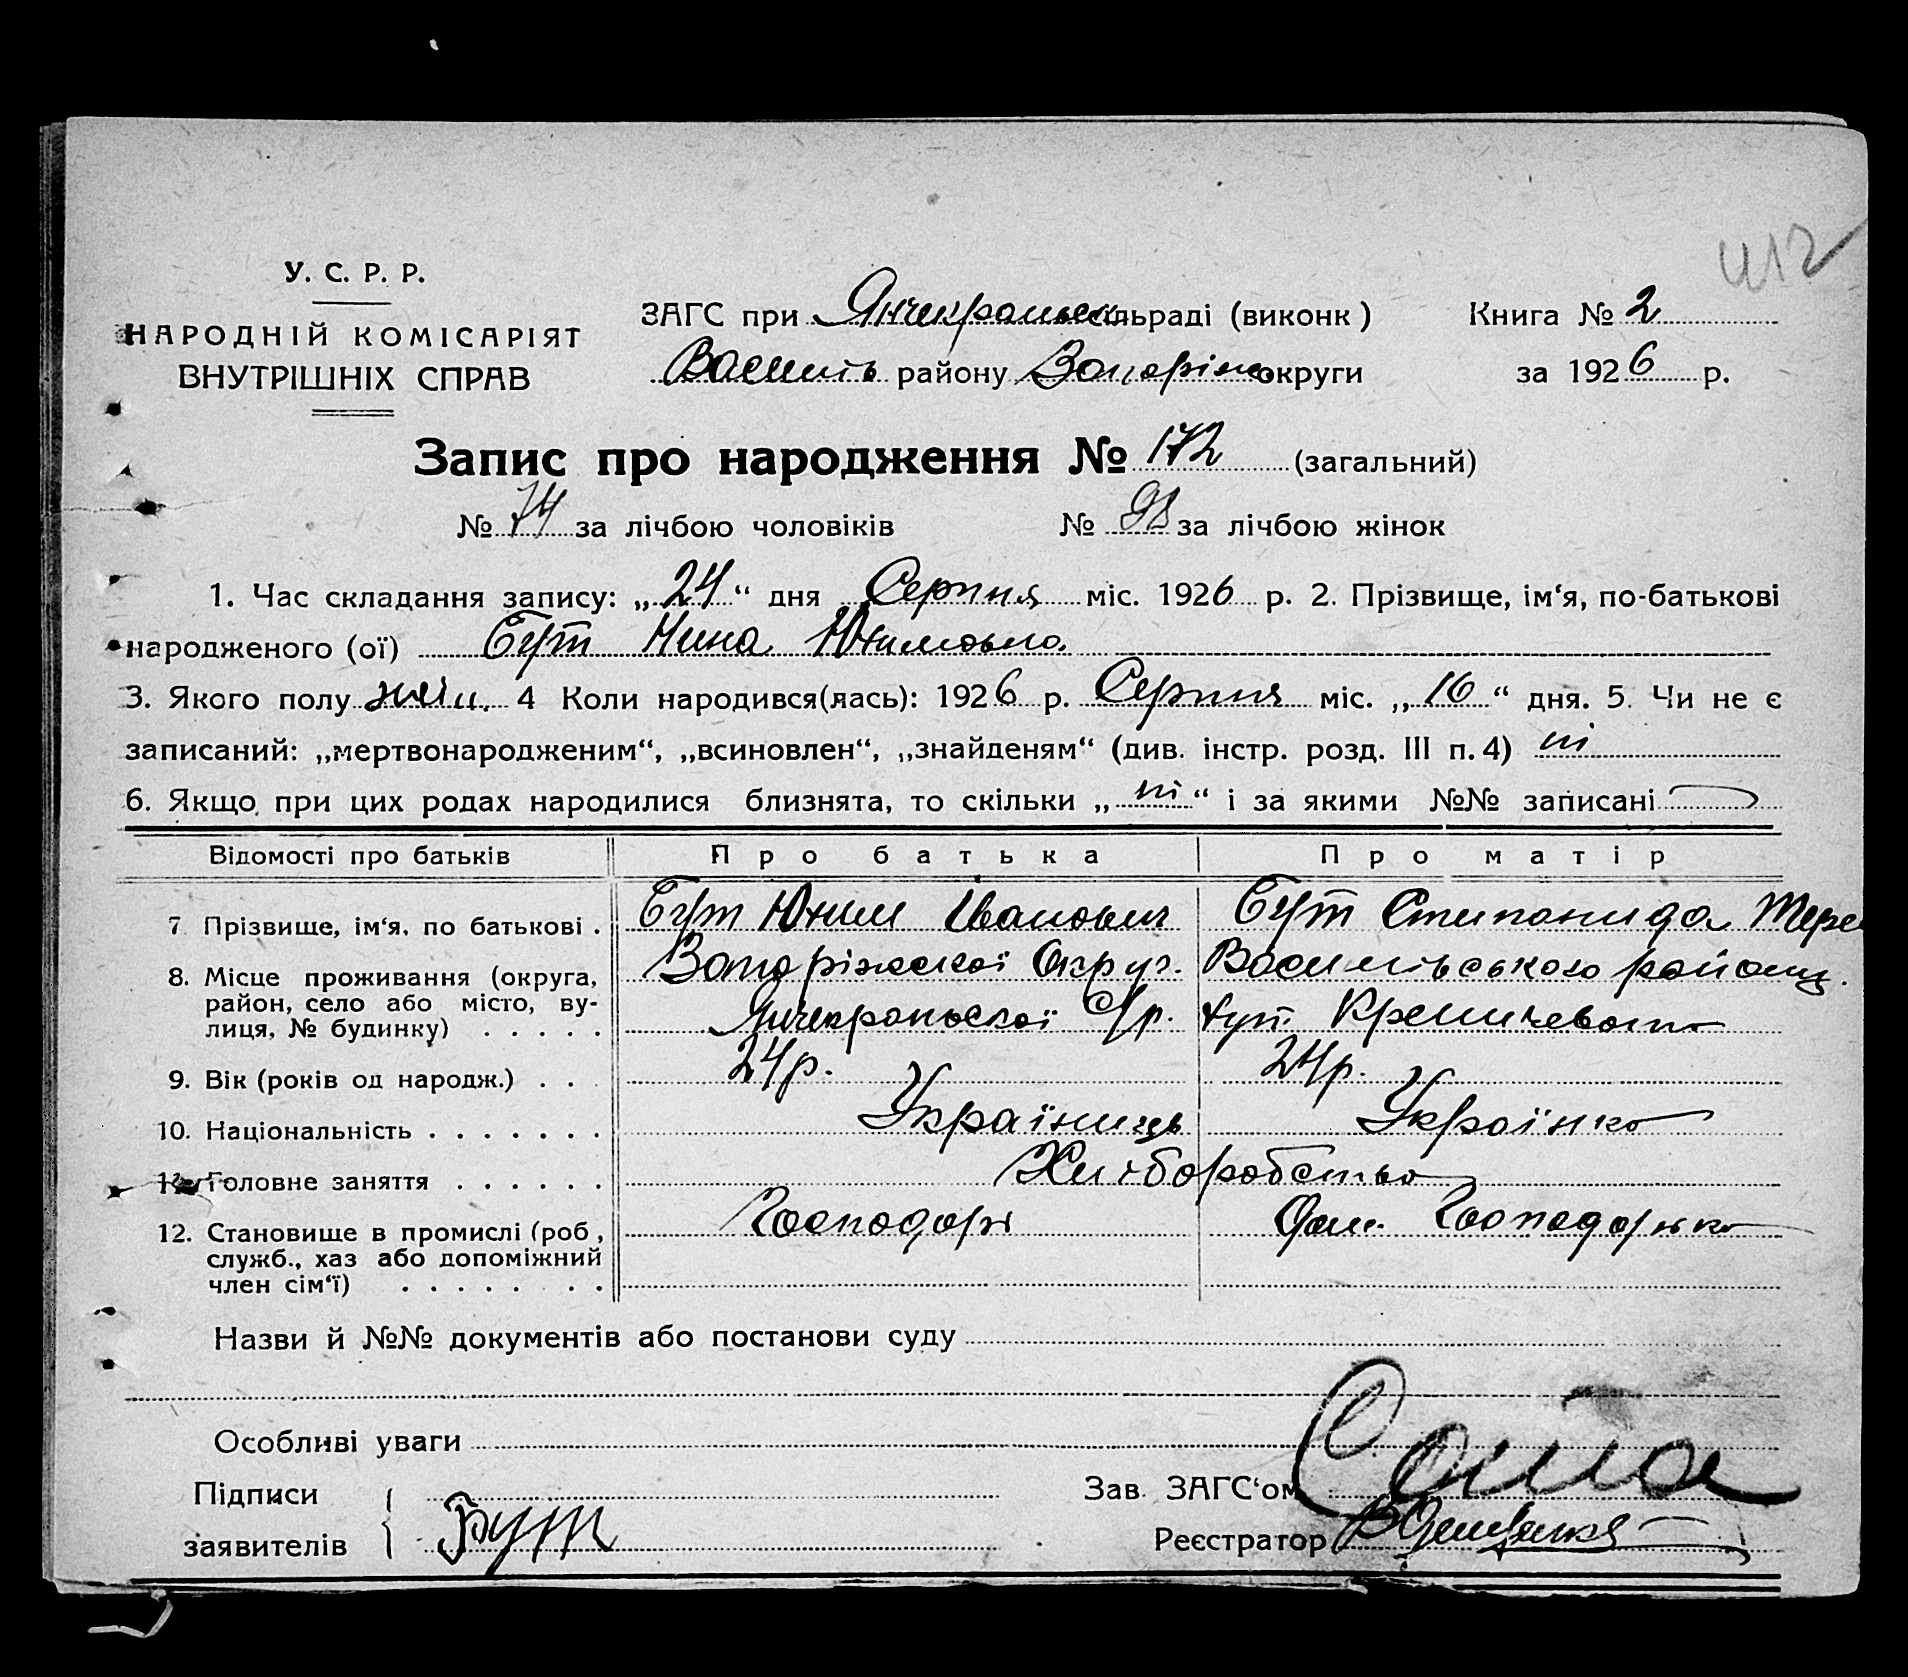 У. С. Р. Р.
НАРОДНІЙ КОМІСАРІЯТ
ВНУТРІШНІХ СПРАВ
412
ЗАГС при Янчекраньск сільраді (виконк)
Книга № 2
Василів району Запоріж. округи
за 1926 р.
Запис про народження № 172 (загальний)
№ 74 за лічбою чоловіків № 98 за лічбою жінок
1. Час складання запису: „24“ дня Серпня міс. 1926 р. 2. Прізвище, ім‘я, по-батькові
народженого (ої) Бут Нина Юхимовна.
3. Якого полу жін. 4 Коли народився(лась): 1926 р. Серпня міс. „16“ дня. 5. Чи не є
записаний: „мертвонародженим“, „всиновлен“, „знайденям“ (див. інстр. розд. III п. 4) ні
6. Якщо при цих родах народилися близнята, то скільки „ні“ і за якими №№ записані
Відомості про батьків Про батька Про матір
7 Прізвище, ім‘я, по батькові . Бут Юхим Іванович Бут Стипанида Тере
8. Місце проживання (округа, Запоріжської Округ. Василівського району.
район, село або місто, ву-
лиця, № будинку) . . . . . Янчекраньской С/р. хут.
9. Вік (років од народж.) . . . 24р. 24р.
10. Національність . . . . . . . Україниць Українка
11. Головне заняття . . . . . . Хліборобство
12. Становище в промислі (роб, Господарь Дом. Господарька
служб., хаз або допоміжний
член сім‘ї) . . . . . . .
Назви й №№ документів або постанови суду
Особливі уваги
Підписи
заявителів
Бут
Зав ЗАГС‘ом
Реєстратор